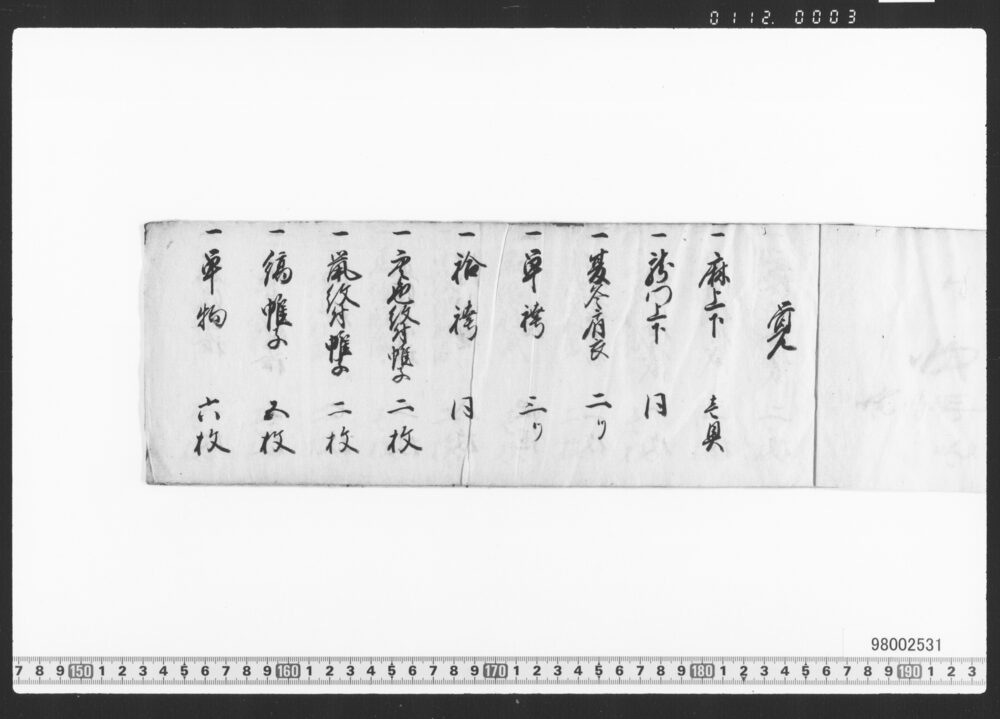 0112. 0003
覚
一麻上下 壱具
一龍門上下 同
一夏冬肩衣 二ツ
一単袴 三ツ
一袷袴 同
一空色紋付帷子 二枚
一鼠紋付帷子 二枚
一縞帷子 五枚
一単物 六枚
98002531
7 8 9 150 1 2 3 4 5 6 7 8 9 160 1 2 3 4 5 6 7 8 9 170 1 2 3 4 5 6 7 8 9 180 1 2 3 4 5 6 7 8 9 190 1 2 3